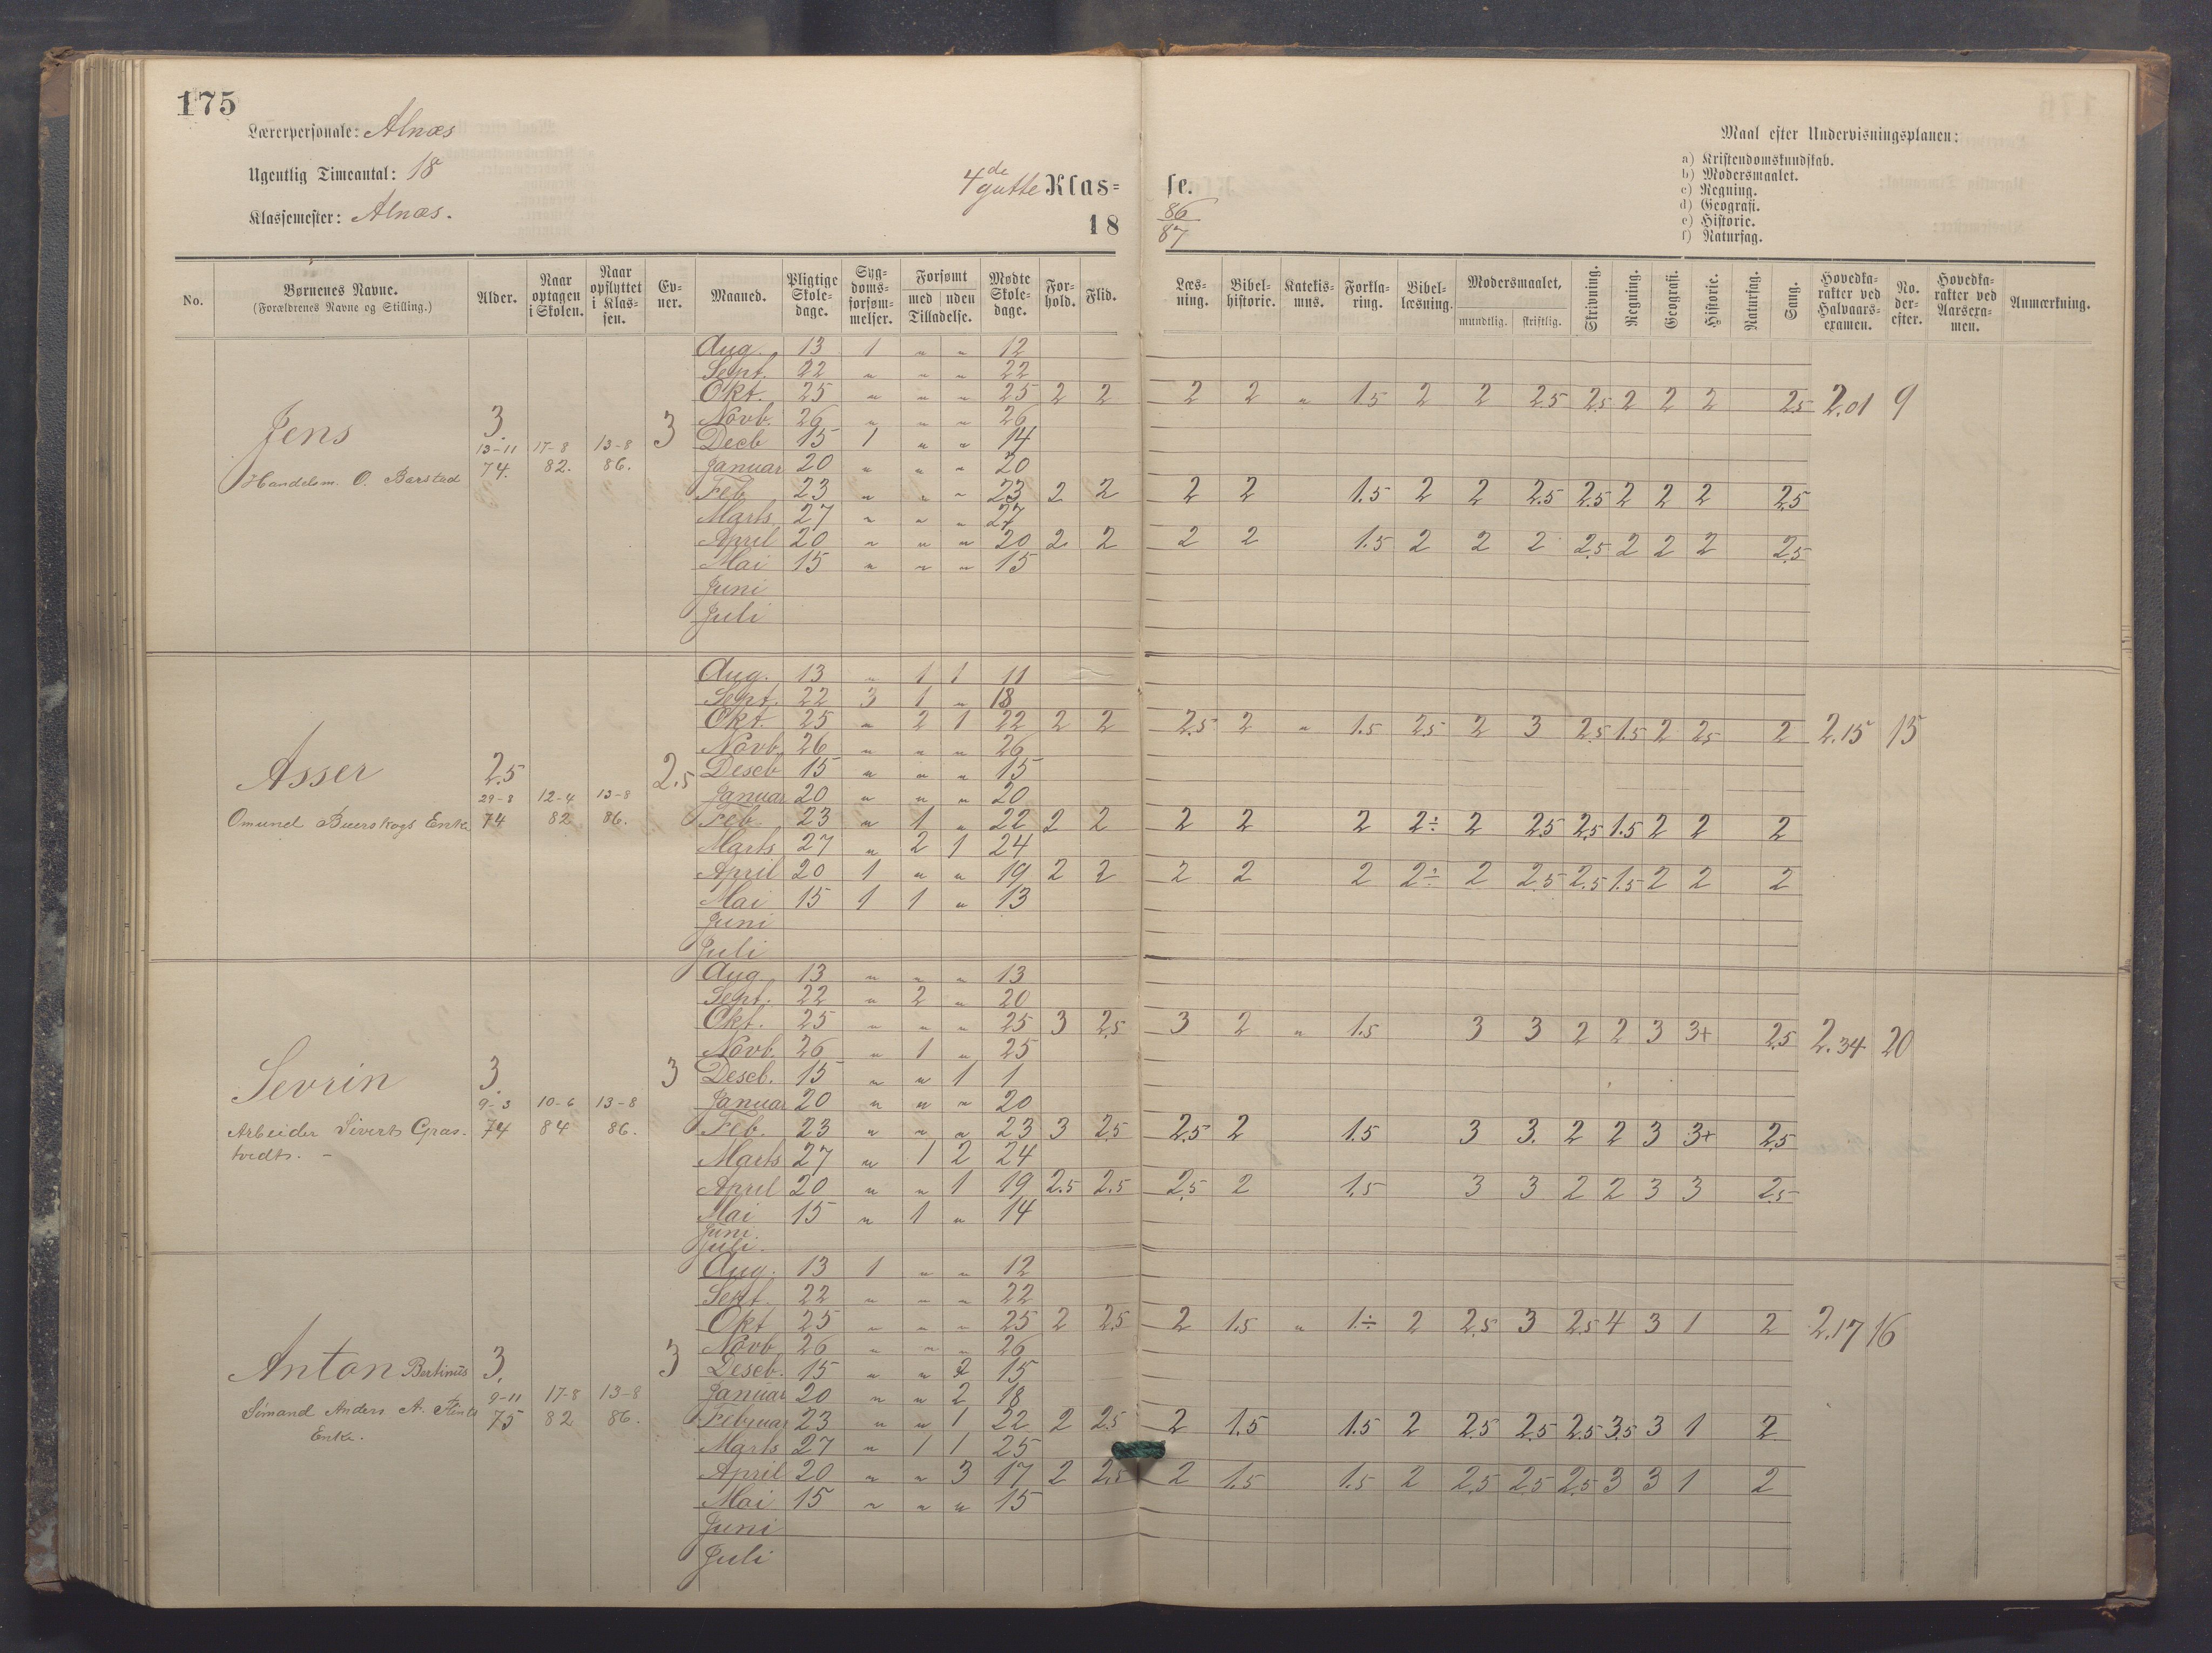 175
Lærerpersonale: Alnæs
Ugentlig Timeantal: 18
Klassemester: Alnæs.
4de gutte Klas= se.
18 86/87
Maal efter Undervisningsplanen:
a) Kristendomskundskab.
b) Modersmaalet.
c) Regning.
d) Geografi.
e) Historie.
f) Naturfag.
No. Børnenes Navne. (Forældrenes Navne og Stilling.) Alder. Naar optagen i Skolen. Naar opflyttet i Klas-sen. Ev-ner. Maaned. Pligtige Skole-dage. Syg-doms-forsøm-melser. Forsømt med uden Tilladelse. Mødte Skole-dage. For-hold. Flid. Læs-ning. Bibel-historie. Katekis-mus. Forkla-ring. Bibel-læsning. Modersmaalet, mundtlig. skriftlig. Skrivning. Regning. Geografi. Historie. Naturfag. Sang. Hovedka-rakter ved Halvaars-examen. No. der-efter. Hovedka-rakter ved Aarsexa-men. Anmærkning.
Aug. 13 1 " " 12
Sept. 22 " " " 22
Okt. 25 " " " 25 2 2 2 2 " 1.5 2 2 2.5 2.5 2 2 2 2.5 2.01 9
Jens 3. 3 Novb. 26 " " " 26
13-11 17-8 13-8 Decb 15 1 " " 14
Handelsm. O. Barstad 74. 82. 86. Januar 20 " " " 20
Feb. 23 " " " 23 2 2 2 2 1.5 2 2 2.5 2.5 2 2 2 2.5
Marts 27 " " " 27
April 20 " " " 20 2 2 2 2 1.5 2 2 2 2.5 2 2 2 2.5
Mai 15 " " " 15
Juni
Juli
Aug. 13 " 1 1 11
Sept. 22 3 1 " 18
Okt. 25 " 2 1 22 2 2 2.5 2 " 1.5 2.5 2 3 2.5 1.5 2 2.5 2 2.15 15
Novb. 26 " " " 26
Asser 2.5 2.5 Deseb 15 " " " 15
29-8 12-4 13-8 Januar 20 " " " 20
Omund Buerskogs Enke 74 82 86. Feb. 23 " 1 " 22 2 2 2 2 2 2÷ 2 2.5 2.5 1.5 2 2 2
Marts 27 " 2 1 24
April 20 1 " " 19 2 2 2 2 2 2÷ 2 2.5 2.5 1.5 2 2 2
Mai 15 1 1 " 13
Juni
Juli
Aug 13 " " " 13
Sept. 22 " 2 " 20
Okt. 25 " " " 25 3 2.5 3 2 " 1.5 3 3 2 2 3 3+ 2.5 2.34 20
Novb. 26 " 1 " 25
Sevrin 3. 3 Deseb. 15 " " 1 1
9-3 10-6 13-8 Januar 20 " " " 20
Arbeider Siverts Gras. 74 84 86. Feb. 23 " " " 23 3 2.5 2.5 2 1.5 3 3. 2 2 3 3+ 2.5
tvedts. - Marts 27 " 1 2 24
April 20 " " 1 19 2.5 2.5 2.5 2 1.5 3 3 2 2 3 3 2.5
Mai 15 " 1 " 14
Juni.
Juli.
Aug. 13 1 " " 12
Sept. 22 " " " 22
Okt 25 " " " 25 2 2.5 2 1.5 " 1÷ 2 2.5 3 2.5 4 3 1 2 2.17 16
Novb 26 " " " 26
Anton Bertinus 3. 3 Deseb. 15 " " 15
9-11 17-8 13-8 Januar 20 " " 2 18
Simand Anders A. 75 82 86. Februar 23 " " 1 22 2 2.5 2 1.5 1.5 2 2.5 2.5 2.5 3.5 3 1 2
Enke. Marts 27 " 1 1 25
April 20 " " 3 17 2 2.5 2 1.5 1.5 2 2.5 2.5 2.5 3 3 1 2
Mai 15 " " " 15
Juni
Juli